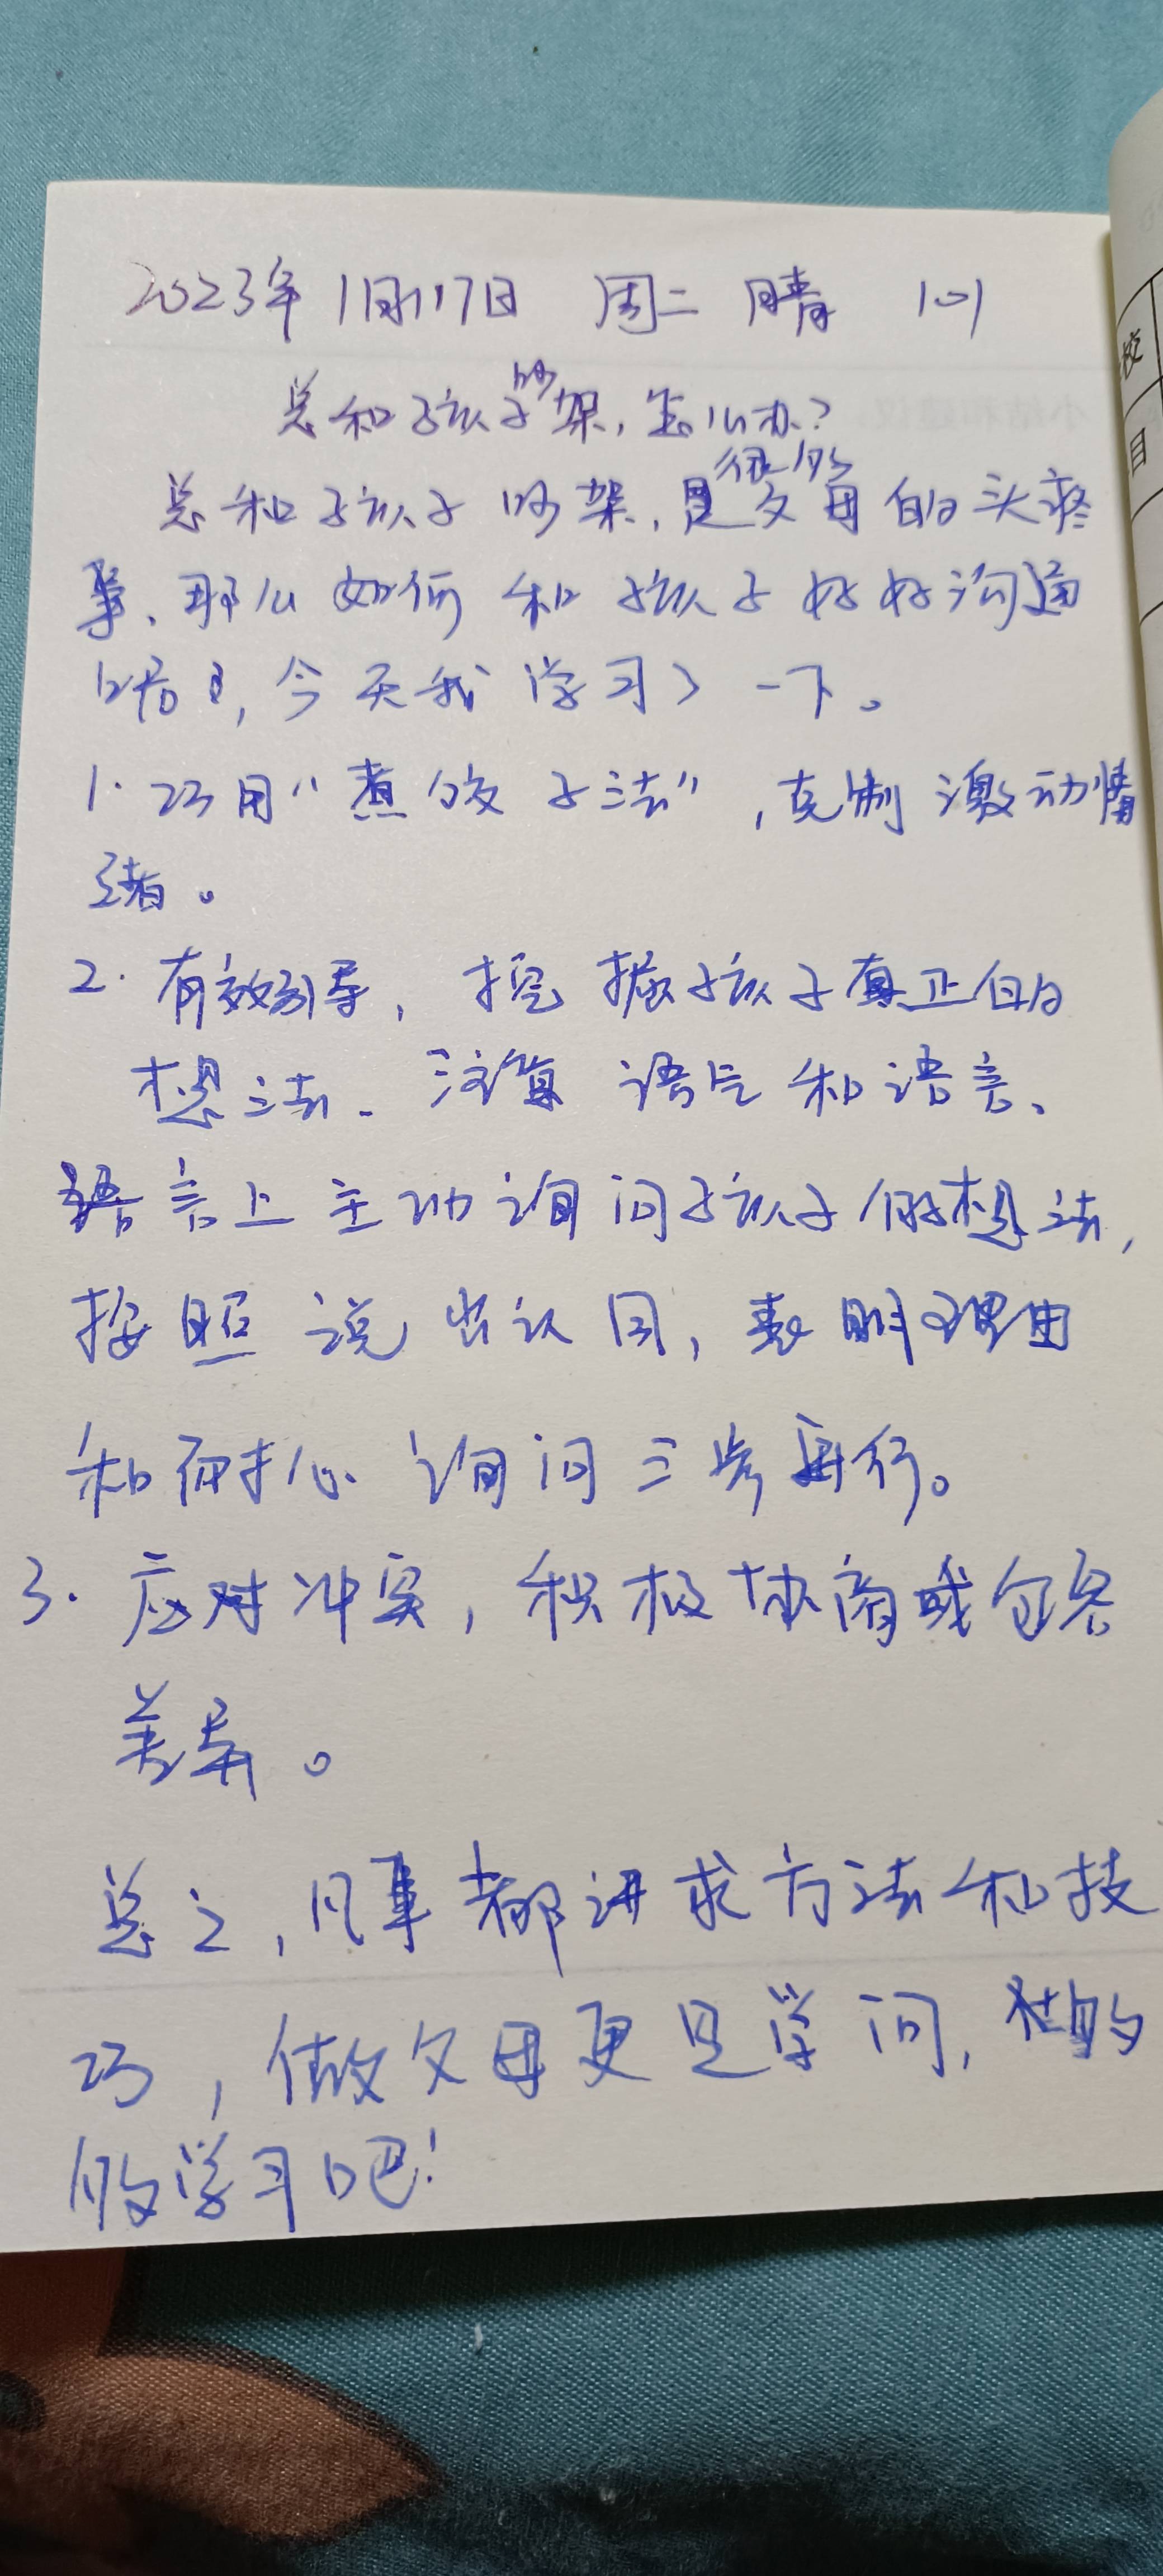 2023年1月17日 周二 晴 101
总和孩子吵架,怎么办?
总和孩子吵架,是很多父母的头疼
事、那么如何和孩子好好沟通
呢,今天我学习了一下。
1.巧用“煮饺子法”,克制激动情
绪。
2.有效引导,挖掘孩子真正的
想法、注意语气和语言、
语言上主动询问孩子的想法,
按照说出认同,表明理由
和耐心询问三步进行。
3.应对冲突,积极协商或包容
差异。
总之,凡事都讲求方法和技
巧,做父母更是学问,
学习吧!
校
目